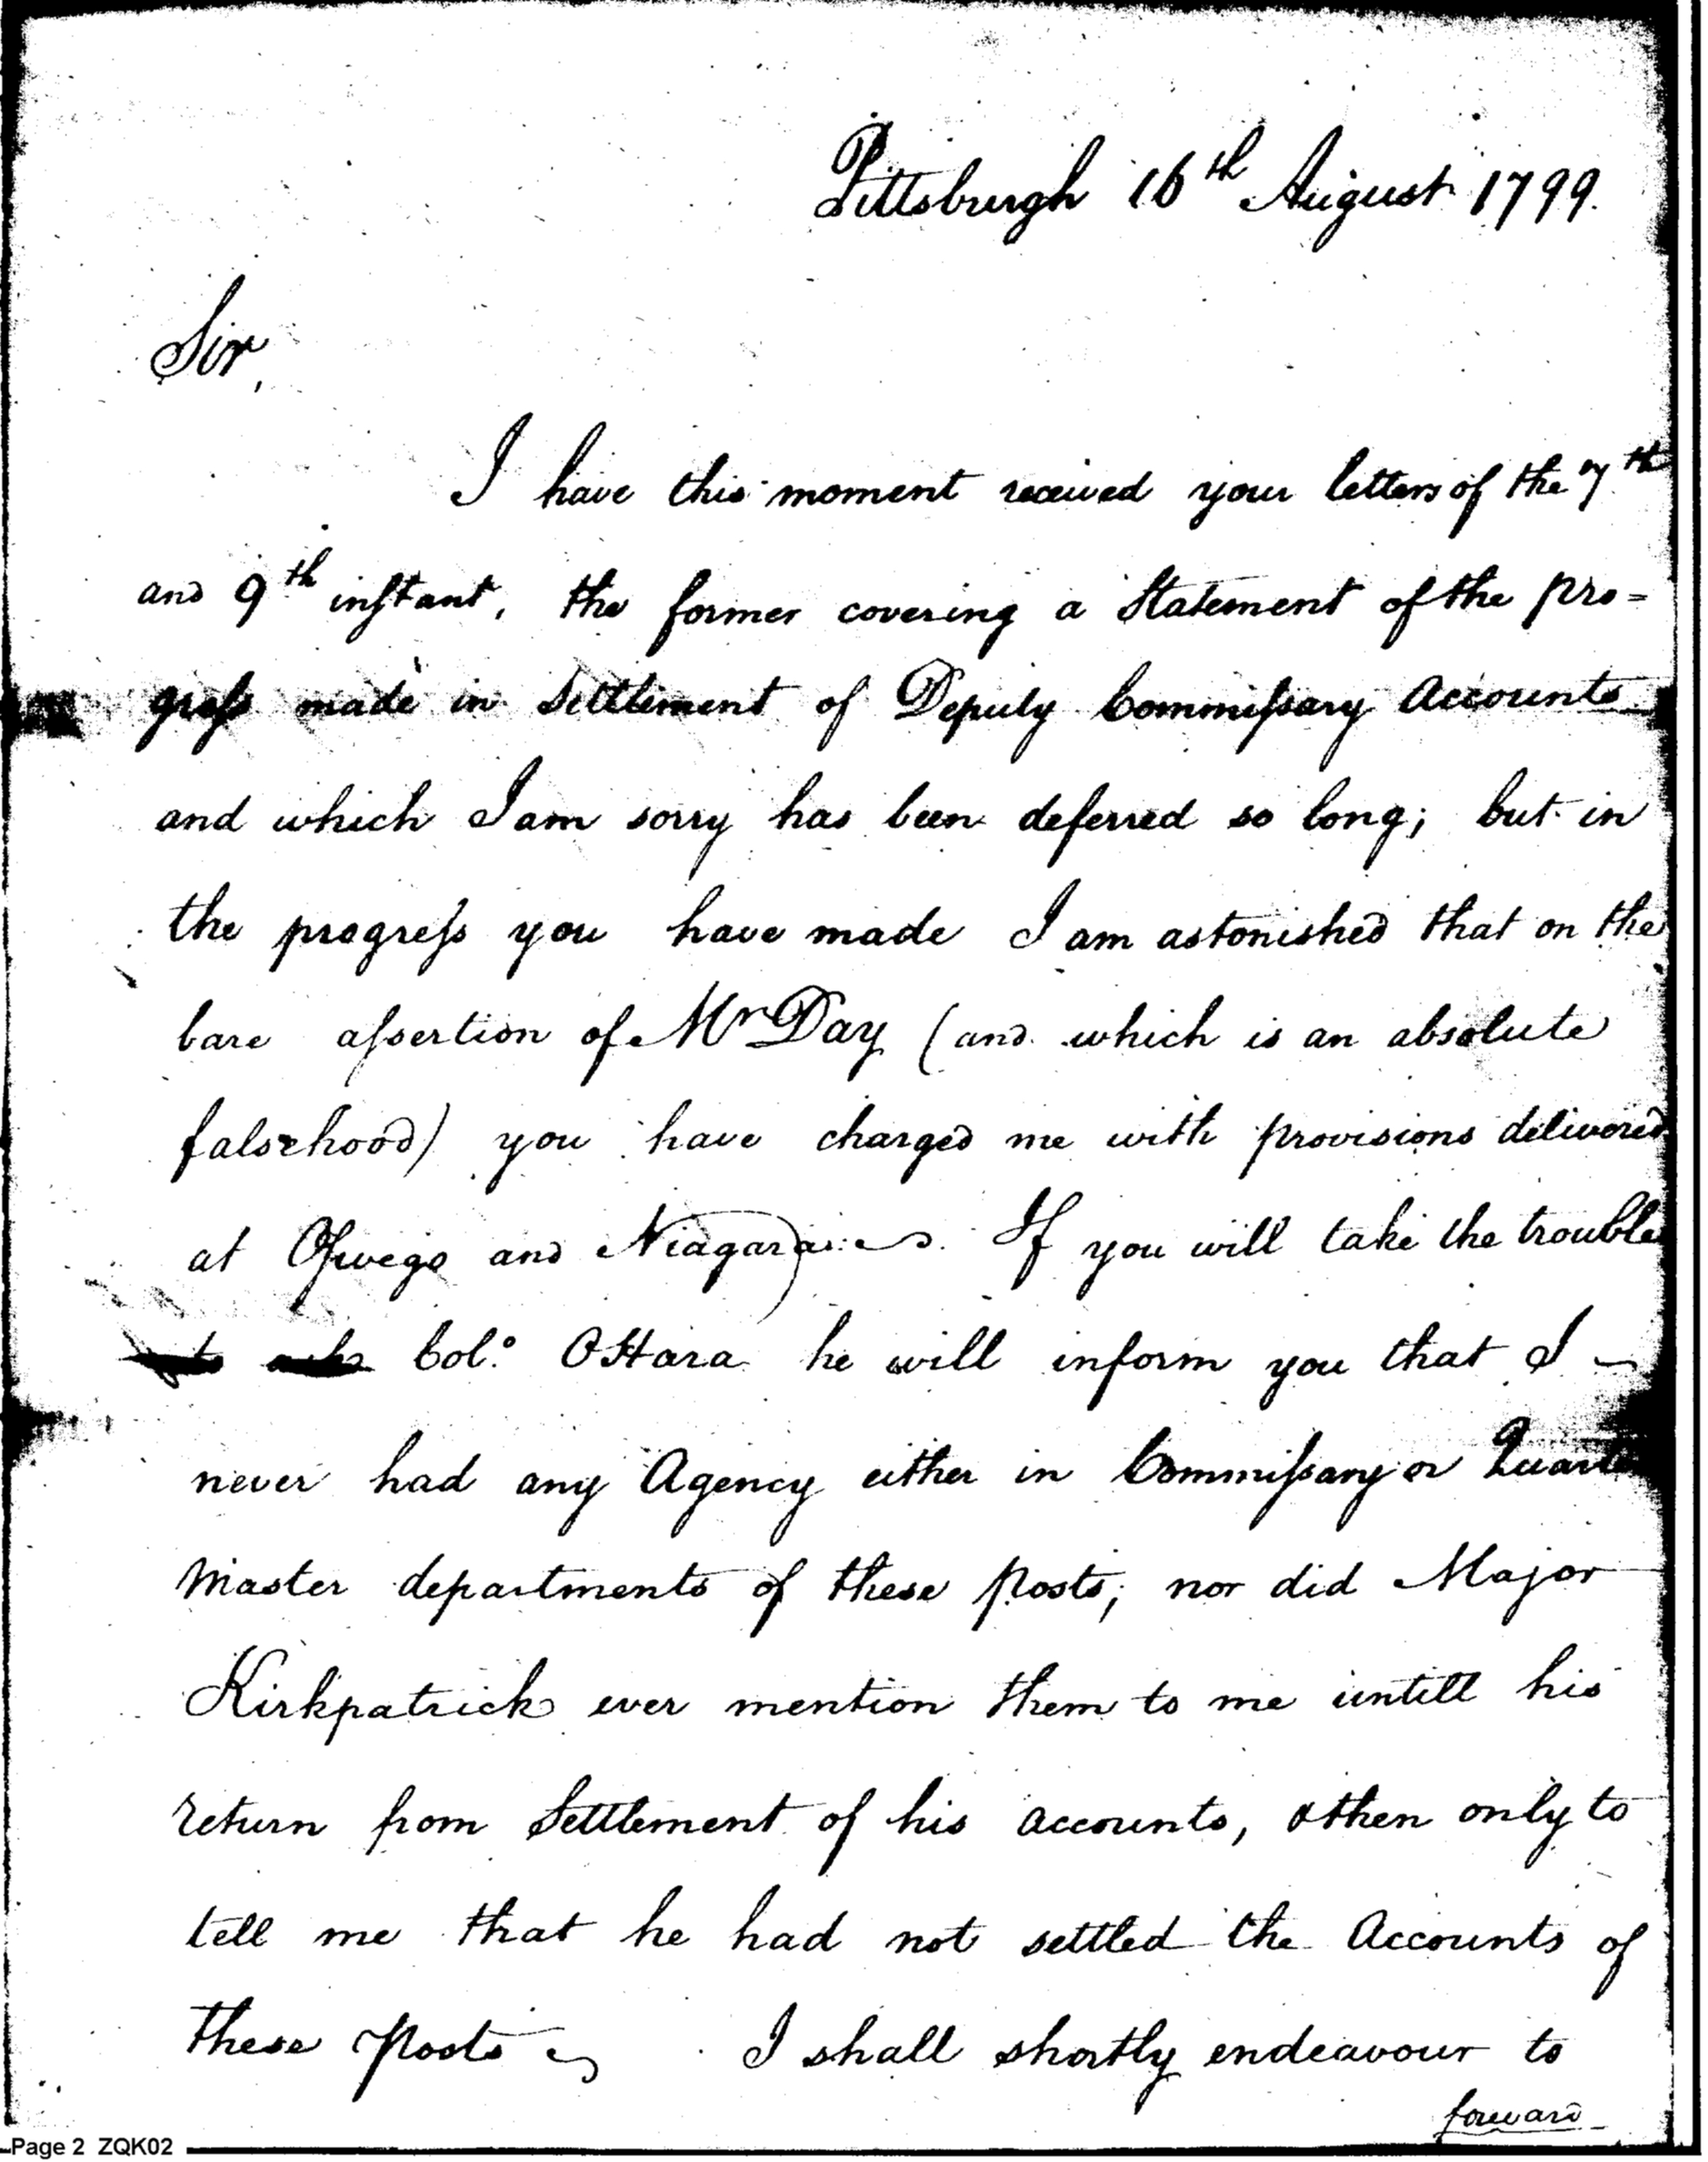 Pittsburgh 16th August 1799.
Sir,
I have this moment received your letters of the 7th
and 9th inſtant, the former covering a Statement of the pro=
greſs made in Settlement of Deputy Commiſsary Accounts
and which I am sorry has been deferred so long; but in
the progreſs you have made I am astonished that on the
bare aſsertion of Mr Day (and which is an absolute
falsehood) you have charged me with provisions delivered
at Oſwego and Niagara. If you will take the trouble
to ask Col.o OHara he will inform you that I
never had any Agency either in Commiſsary or Quarter
Master departments of these posts; nor did Major
Kirkpatrick ever mention them to me untill his
return from Settlement of his accounts, & then only to
tell me that he had not settled the Accounts of
these Posts I shall shortly endeavour to
forward
Page 2 ZQK02